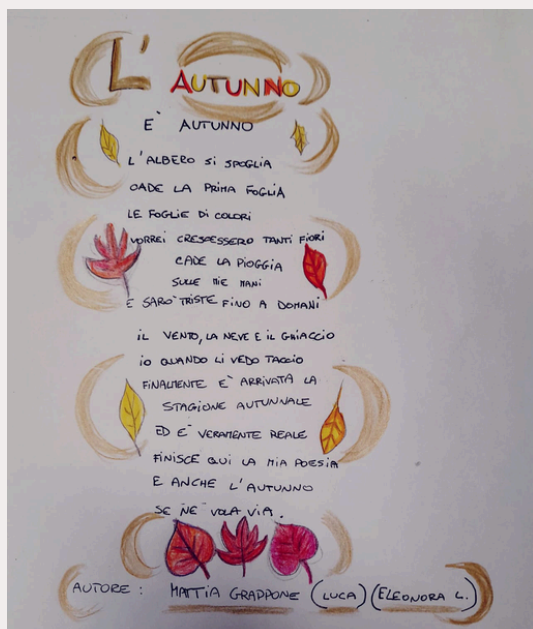 L' AUTUNNO
E' AUTUNNO
L'ALBERO SI SPOGLIA
CADE LA PRIMA FOGLIA
LE FOGLIE DI COLORI
VORREI CRESCESSERO TANTI FIORI
CADE LA PIOGGIA
SULLE MIE MANI
E SARO' TRISTE FINO A DOMANI
IL VENTO, LA NEVE E IL GHIACCIO
IO QUANDO LI VEDO TACCIO
FINALMENTE E' ARRIVATA LA
STAGIONE AUTUNNALE
ED E' VERAMENTE REALE
FINISCE QUI LA MIA POESIA
E ANCHE L'AUTUNNO
SE NE VOLA VIA.
AUTORE: MATTIA GRAPPONE (LUCA) (ELEONORA L.)